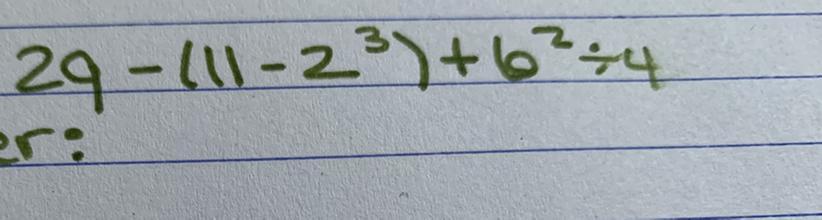 29 - (11 - 2³) + 6² ÷ 4
er: